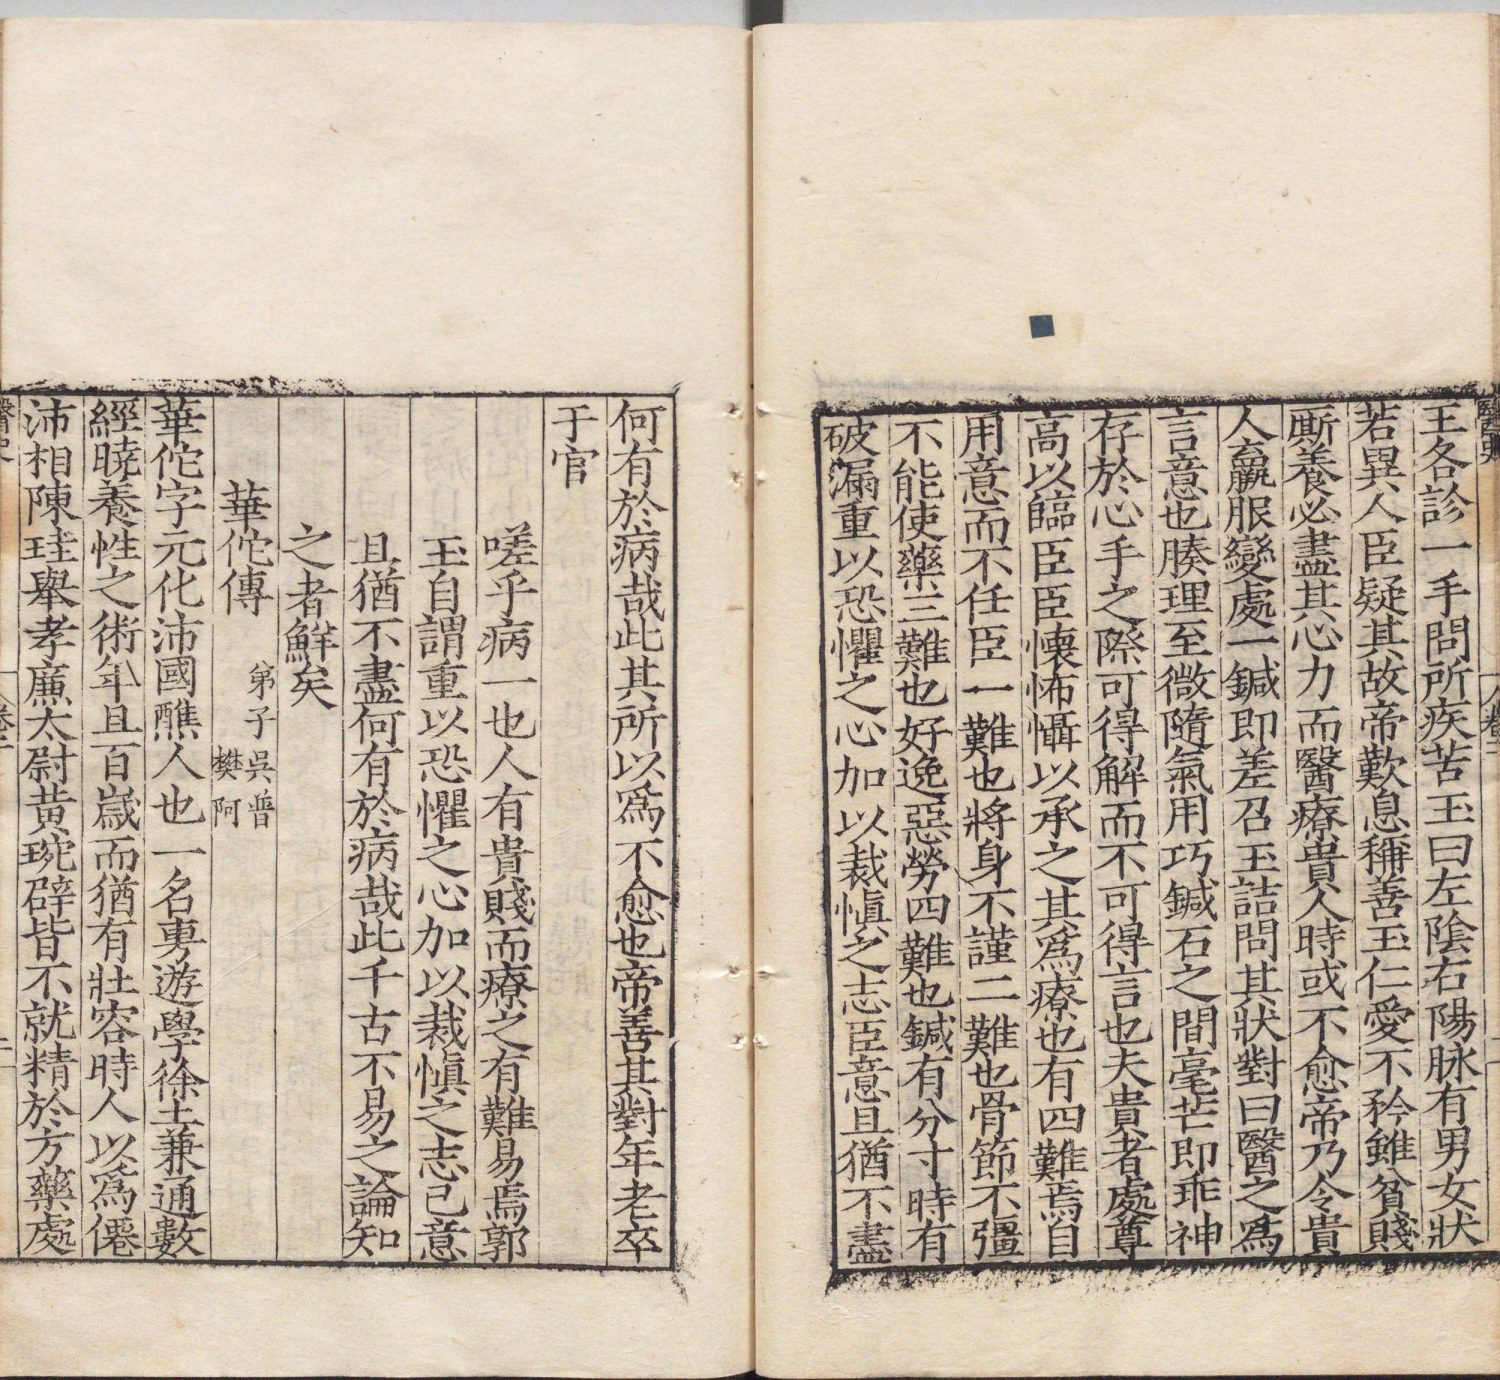 玉各診一手問所疾苦玉曰左陰右陽脉有男女狀
若異人臣疑其故帝歎息稱善玉仁愛不矜雖貧賤
厮養必盡其心力而醫療貴人時或不愈帝乃令貴
人羸服變處一鍼即差召玉詰問其狀對曰醫之爲
言意也腠理至微隨氣用巧鍼石之間毫芒即乖神
存於心手之際可得解而不可得言也夫貴者處尊
高以臨臣臣懷怖懾以承之其爲療也有四難焉自
用意而不任臣一難也將身不謹二難也骨節不彊
不能使藥三難也好逸惡勞四難也鍼有分寸時有
破漏重以恐懼之心加以裁慎之志臣意且猶不盡
何有於病哉此其所以爲不愈也帝善其對年老卒
于官
嗟乎病一也人有貴賤而療之有難易焉郭
玉自謂重以恐懼之心加以裁慎之志己意
且猶不盡何有於病哉此千古不易之論知
之者鮮矣
華佗傳
弟子吳普
樊阿
華佗字元化沛國譙人也一名旉遊學徐土兼通數
經曉養性之術年且百歲而猶有壯容時人以爲僊
沛相陳珪舉孝廉太尉黃琬辟皆不就精於方藥處
醫史
卷二
二